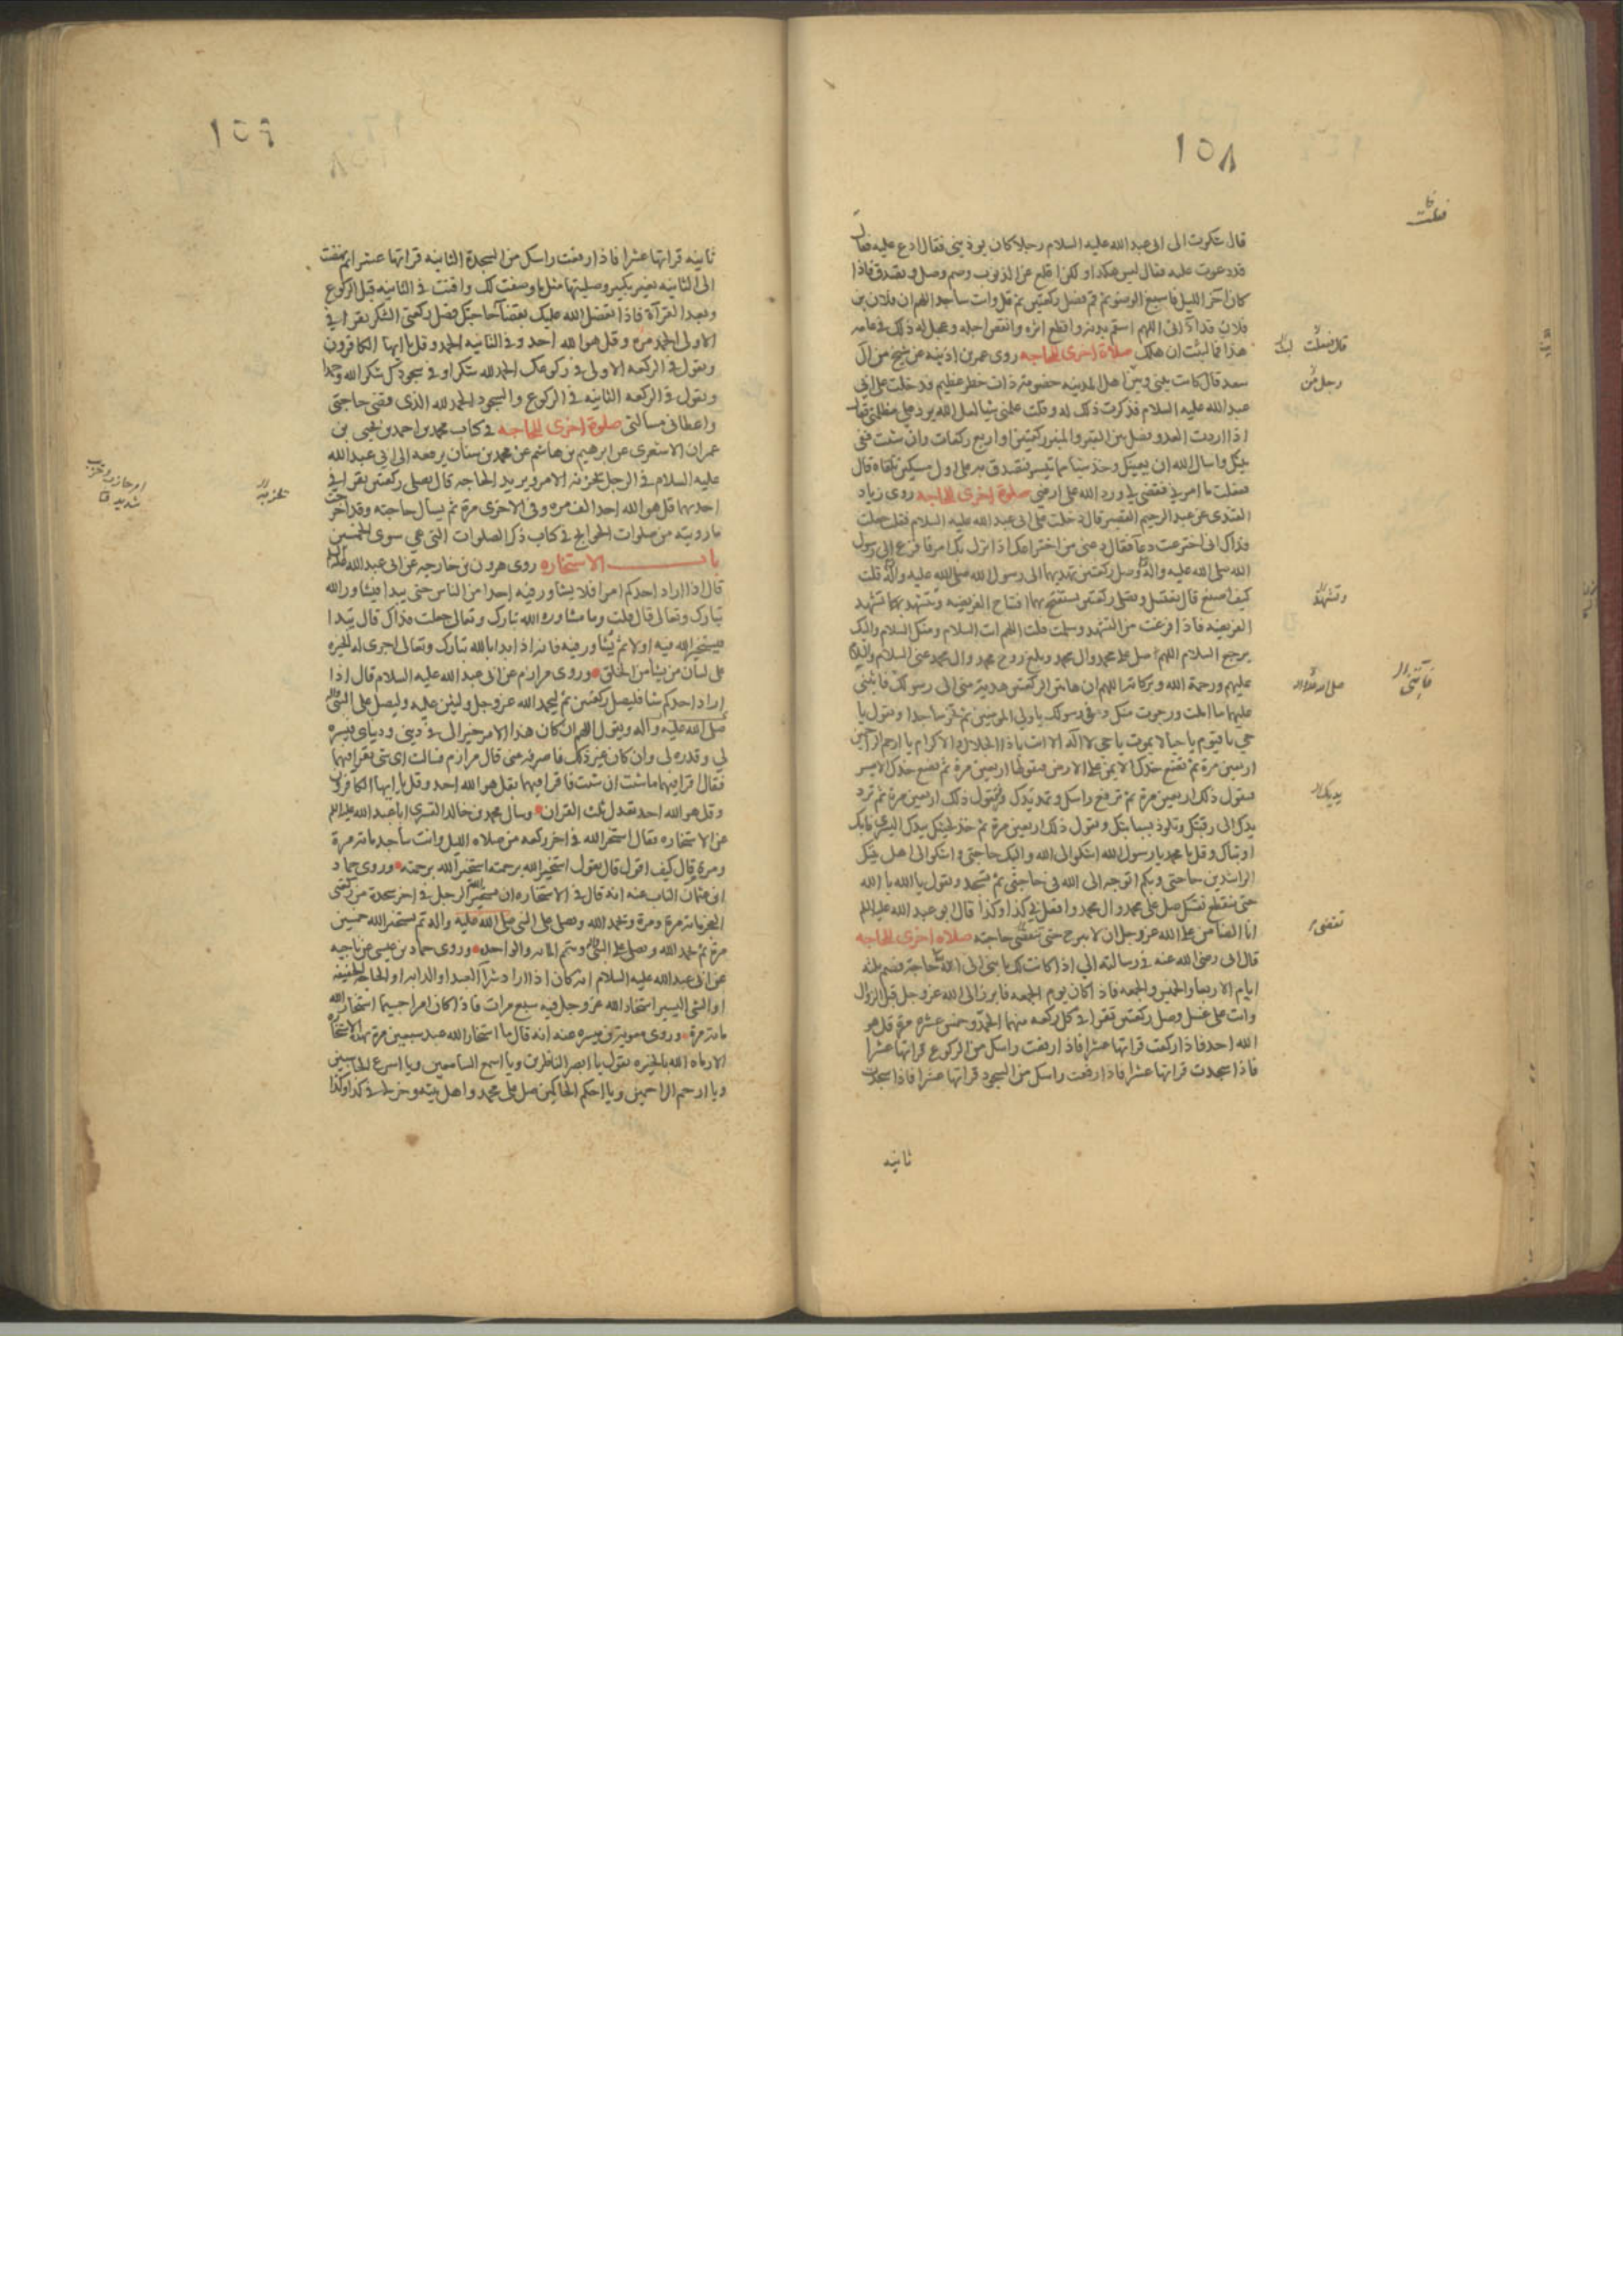 ١٥٨
قال شكوت الى ابى عبد الله عليه السلام رجلا كان يوذينى فقال ادع عليه فقال
قد دعوت عليه فقال ليس هكذا ولكن اقلع عن الذنوب وصم وصل وتصدق فاذا
كان اخر الليل فاسبغ الوضوء ثم قم فصل ركعتين ثم قل وانت ساجد اللهم ان فلان بن
فلان قد اذانى اللهم اسقم بدنه واقطع اثره وانقص اجله وعجل له ذلك فى عامه
هذا فما لبثت ان هلك صلاة اخرى للحاجه روى عمر بن اذينه عن شيخ من آل
سعد قال كانت بينى وبين اهل المدينه خصومه ذات خطر عظيم فدخلت على ابى
عبد الله عليه السلام فذكرت ذلك له وقلت علمنى شيا لعل الله يرد على مظلمتى فقال
اذا اردت العدو فصل بين القبر والمنبر ركعتين او اربع ركعات وان شئت ففى
بيتك واسال الله ان يعينك وخذ شيا مما تيسر فتصدق به على اول مسكين تلقاه قال
ففعلت ما امرنى فقضى لى ورد الله على ارضى صلوة اخرى للحاجه روى زياد
القندى عن عبد الرحيم القصير قال دخلت على ابى عبد الله عليه السلام فقلت جعلت
فداك انى اخترعت دعا فقال دعنى من اختراعك اذا نزل بك امر فافزع الى رسول
الله صلى الله عليه واله وصل ركعتين تهديهما الى رسول الله صلى الله عليه واله قلت
كيف اصنع قال تغتسل وتصلى ركعتين تستفتح بهما افتتاح الفريضه وتتشهد كما تتشهد
الفريضه فاذا فرغت من التشهد وسلمت قلت اللهم انت السلام ومنك السلام واليك
يرجع السلام اللهم صل على محمد وال محمد وبلغ روح محمد وال محمد عنى السلام
عليهم ورحمة الله وبركاته اللهم ان هاتين الركعتين هدية منى الى رسولك فاثبنى
عليهما ما املت ورجوت منك وفى رسولك يا ولى المومنين ثم تخر ساجدا وتقول يا
حى يا قيوم يا حيا لا يموت يا حى لا اله الا انت يا ذا الجلال والاكرام يا ارحم الراحمين
اربعين مرة ثم تضع خدك الايمن على الارض فتقولها اربعين مرة ثم تضع خدك الايسر
فتقول ذلك اربعين مرة ثم ترفع راسك وتمد يدك وتقول ذلك اربعين مرة ثم ترد
يدك الى رقبتك وتلوذ بسبابتك وتقول ذلك اربعين مرة ثم خذ لحيتك بيدك اليسرى فابك
او تباك وقل يا محمد يا رسول الله اشكو الى الله واليك حاجتى واشكو الى اهل بيتك
الراشدين حاجتى وبكم اتوجه الى الله فى حاجتى ثم تسجد وتقول يا الله يا الله
حتى ينقطع نفسك صل على محمد وال محمد وافعل بى كذا وكذا قال ابو عبد الله عليه السلم
انا الضامن على الله عز وجل ان لا يبرح حتى تقضى حاجته صلاة اخرى للحاجه
قال ابى رضى الله عنه فى رسالته الى اذا كانت لك يا بنى الى الله حاجة فصم ثلثه
ايام الاربعا والخميس والجمعه فاذا كان يوم الجمعه فابرز الى الله عز وجل قبل الزوال
وانت على غسل وصل ركعتين تقرا فى كل ركعه منهما الحمد وخمس عشره مرة قل هو
الله احد فاذا ركعت قراتها عشرا فاذا رفعت راسك من الركوع قراتها عشرا
فاذا سجدت قراتها عشرا فاذا رفعت راسك من السجود قراتها عشرا فاذا سجدت
ثانيه
١٥٩
ثانيه قراتها عشرا فاذا رفعت راسك من السجدة الثانيه قراتها عشرا ثم نهضت
الى الثانيه بغير تكبير وصليتها مثل ما وصفت لك واقنت فى الثانيه قبل الركوع
وبعد القرآة فاذا تفضل الله عليك بقضآ حاجتك فصل ركعتى الشكر تقرا فى
الاولى الحمد مره وقل هو الله احد وفى الثانيه الحمد وقل يا ايها الكافرون
وتقول فى الركعه الاولى فى ركوعك الحمد لله شكرا وفى سجودك شكر الله وحمدا
وتقول فى الركعه الثانيه فى الركوع والسجود الحمد لله الذى قضى حاجتى
واعطانى مسالتى صلوة اخرى للحاجه فى كتاب محمد بن احمد بن يحيى بن
عمران الاشعرى عن ابرهيم بن هاشم عن محمد بن سنان يرفعه الى ابى عبد الله
عليه السلام فى الرجل يحزنه الامر ويريد الحاجه قال يصلى ركعتين يقرا فى
احديهما قل هو الله احد الف مره وفى الاخرى مرة ثم يسال حاجته وقد اخرجت
ما رويته من صلوات الحوايج فى كتاب ذكر الصلوات التى هى سوى الخمسين
باب الاستخاره روى هرون بن خارجه عن ابى عبد الله
قال اذا اراد احدكم امرا فلا يشاور فيه احدا من الناس حتى يبدا فيشاور الله
تبارك وتعالى قال قلت وما مشاورة الله تبارك وتعالى جعلت فداك قال يبدا
فيستخير الله فيه اولا ثم يشاور فيه فانه اذا بدا بالله تبارك وتعالى اجرى له الخيره
على لسان من يشا من الخلق وروى مرازم عن ابى عبد الله عليه السلام قال اذا
اراد احدكم شيا فليصل ركعتين ثم ليحمد الله عز وجل وليثن عليه وليصل على النبى
صلى الله عليه وآله ويقول اللهم ان كان هذا الامر خيرا لى فى دينى ودنياى فيسره
لى وقدره لى وان كان غير ذلك فاصرفه عنى قال مرازم فسالت اى شى نقرا فيهما
فقال اقرا فيهما ما شئت ان شئت فاقرا فيهما بقل هو الله احد وقل يا ايها الكافرون
وقل هو الله احد تعدل ثلث القران وسال محمد بن خالد القسرى ابا عبد الله عليه السلم
عن الاستخاره فقال استخر الله فى اخر ركعه من صلاه الليل وانت ساجد مائه مرة
ومرة قال كيف اقول قال تقول استخير الله برحمته استخير الله برحمته وروى حماد
ابن عثمان الناب عنه انه قال فى الاستخاره ان يستخير الله الرجل فى اخر سجدة من ركعتى
الفجر مائه مرة ومرة وتحمد الله وتصلى على النبى صلى الله عليه واله ثم يستخير الله خمسين
مرة ثم تحمد الله وتصلى على النبى ويتم المائه والواحده وروى حماد بن عيسى عن ناجيه
عن ابى عبد الله عليه السلام انه كان اذا اراد شرآ العبد او الدابه او الحاجه الخفيفه
او الشى اليسير استخار الله عز وجل فيه سبع مرات فاذا كان امرا جسيما استخار الله
مائه مرة وروى معويه بن ميسره عنه انه قال ما استخار الله عبد سبعين مرة بهذه الاستخاره
الا رماه الله بالخيره يقول يا ابصر الناظرين ويا اسمع السامعين ويا اسرع الحاسبين
ويا ارحم الراحمين ويا احكم الحاكمين صل على محمد واهل بيته وخر لى فى كذا وكذا